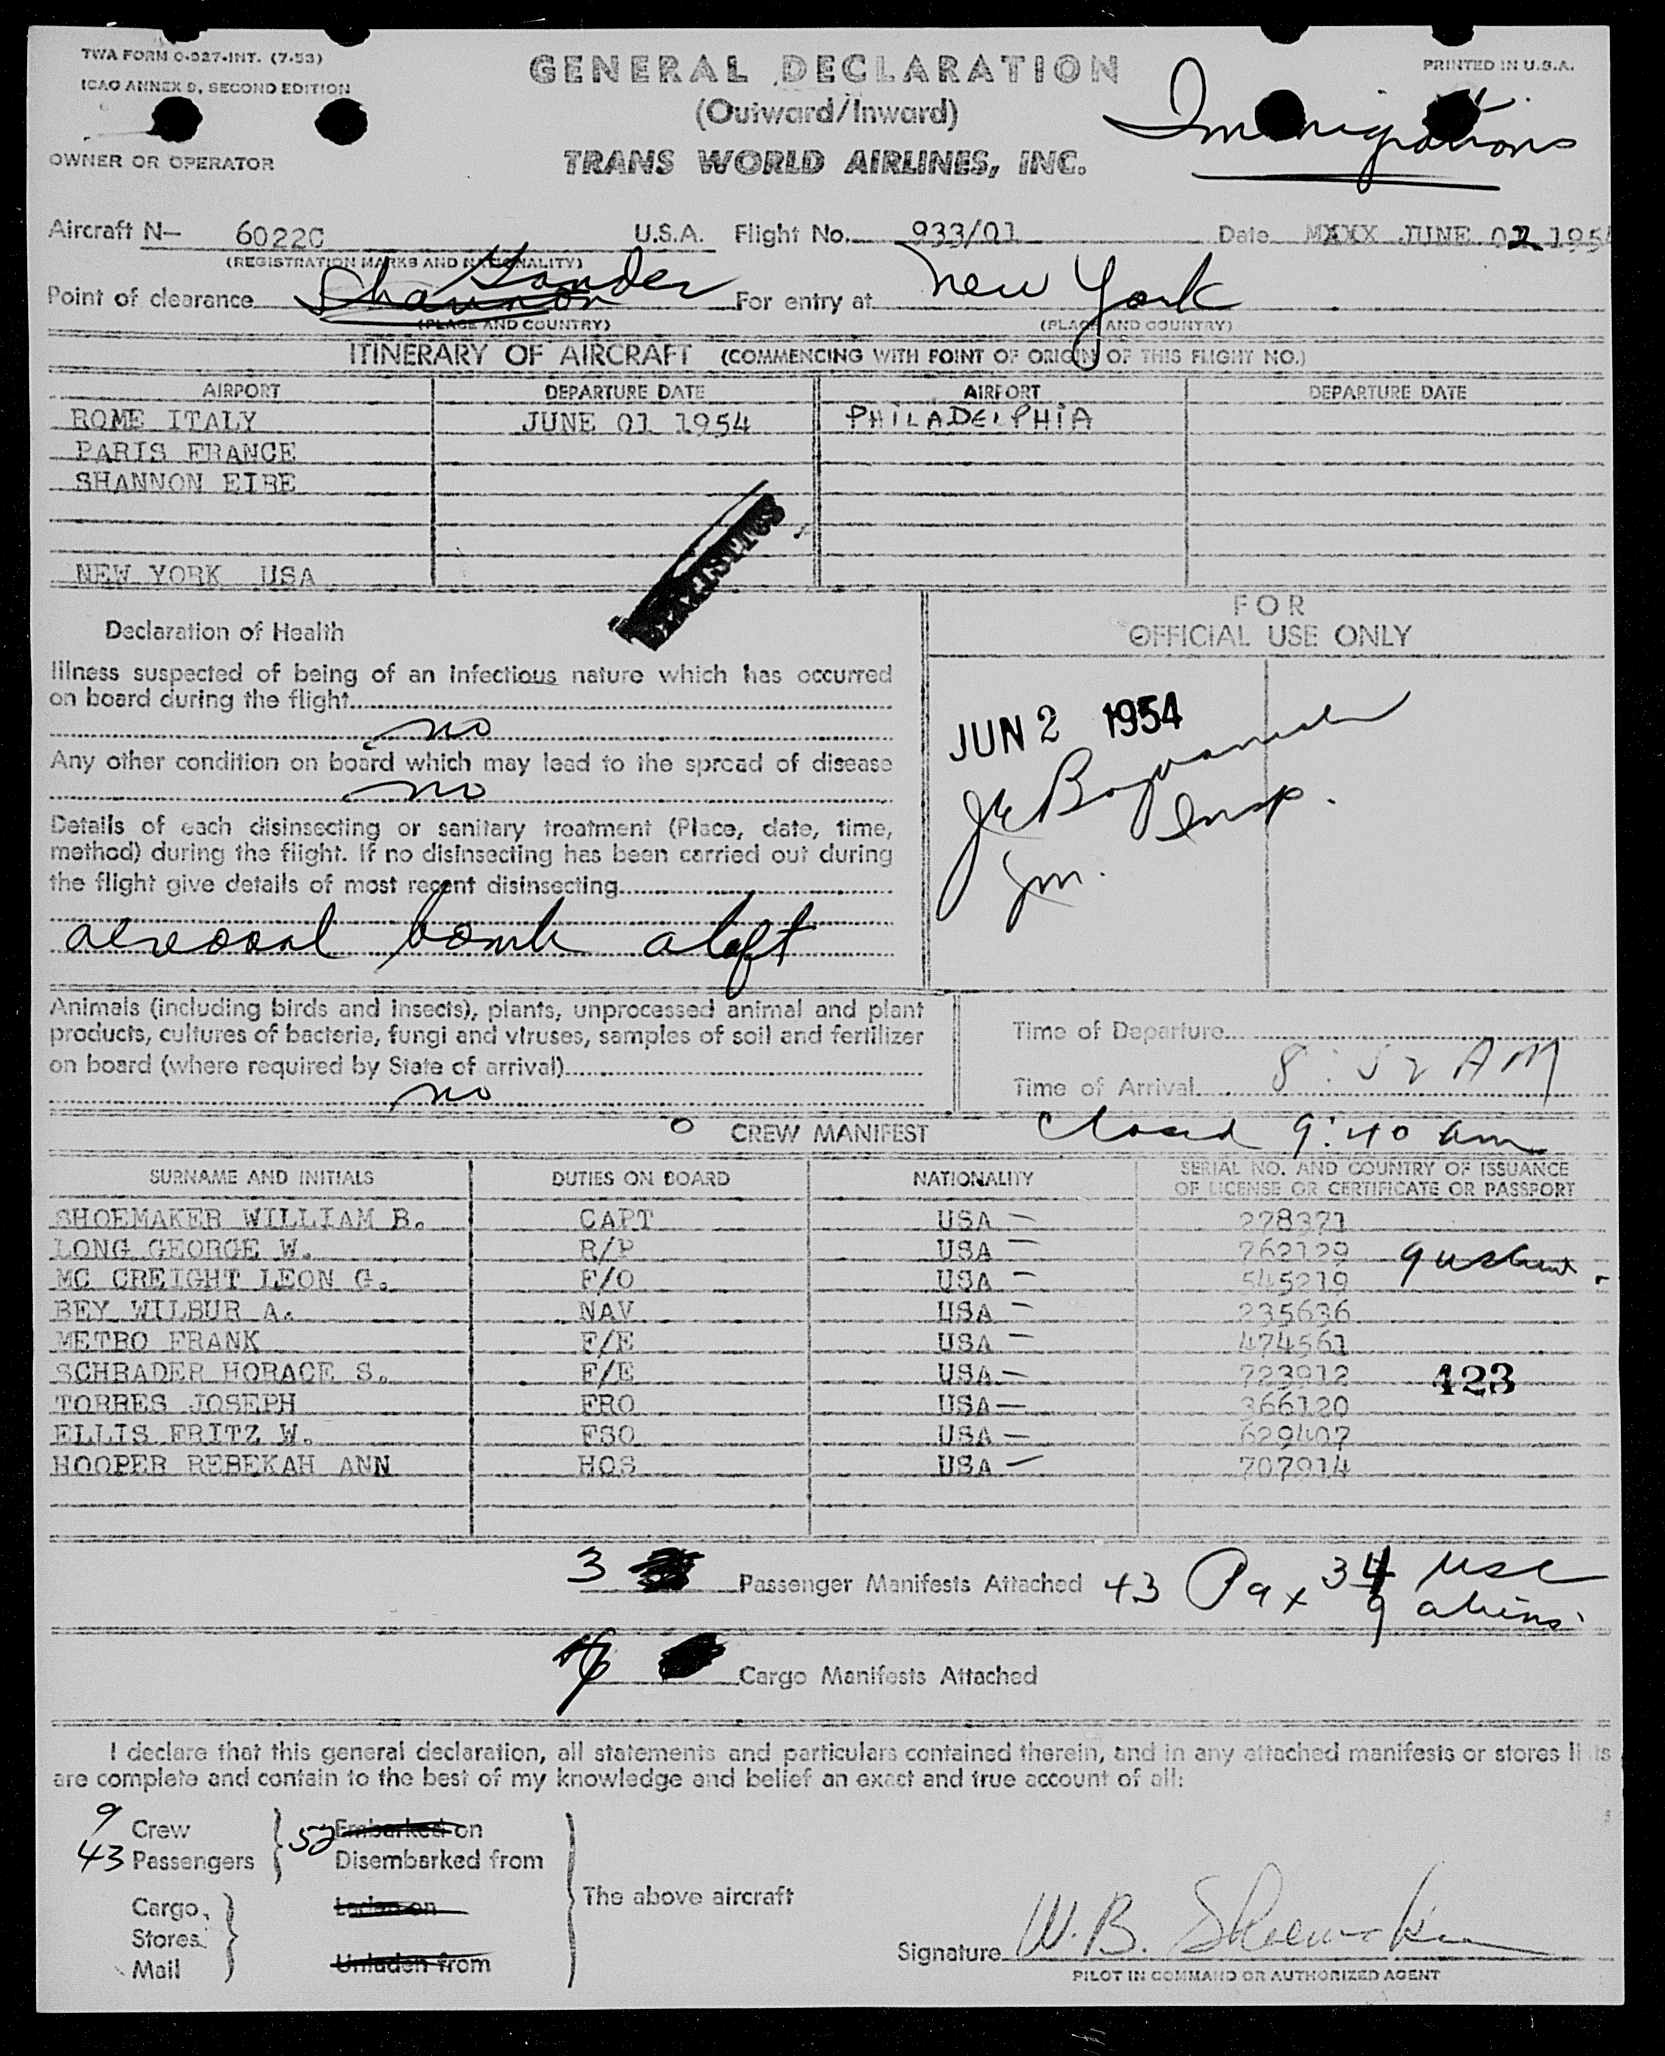 TWA FORM O-927-INT. (7-53)
ICAO ANNEX 9, SECOND EDITION
GENERAL DECLARATION
PRINTED IN U.S.A.
(Outward/Inward)
Immigrations
OWNER OR OPERATOR
TRANS WORLD AIRLINES, INC.
Aircraft N— 6022C U.S.A. Flight No. 933/01 Date MXXX JUNE 02 1954
(REGISTRATION MARKS AND NATIONALITY)
Gander
Point of clearance Shannon For entry at New York
(PLACE AND COUNTRY) (PLACE AND COUNTRY)
ITINERARY OF AIRCRAFT (COMMENCING WITH POINT OF ORIGIN OF THIS FLIGHT NO.)
AIRPORT DEPARTURE DATE AIRPORT DEPARTURE DATE
ROME ITALY JUNE 01 1954 PHILADELPHIA
PARIS FRANCE
SHANNON EIRE
NEW YORK USA
Declaration of Health
Illness suspected of being of an infectious nature which has occurred
on board during the flight
no
Any other condition on board which may lead to the spread of disease
no
Details of each disinsecting or sanitary treatment (Place, date, time,
method) during the flight. If no disinsecting has been carried out during
the flight give details of most recent disinsecting
aereosal bomb aloft
FOR
OFFICIAL USE ONLY
JUN 2 1954
Insp.
Animals (including birds and insects), plants, unprocessed animal and plant
products, cultures of bacteria, fungi and viruses, samples of soil and fertilizer
on board (where required by State of arrival)
no
Time of Departure
Time of Arrival 8:52 AM
CREW MANIFEST
Closed 9:40 am
SURNAME AND INITIALS DUTIES ON BOARD NATIONALITY SERIAL NO. AND COUNTRY OF ISSUANCE
OF LICENSE OR CERTIFICATE OR PASSPORT
SHOEMAKER WILLIAM B. CAPT USA — 278371
LONG GEORGE W. R/P USA — 762129
MC CREIGHT LEON G. F/O USA — 545219
BEY WILBUR A. NAV USA — 235636
METRO FRANK F/E USA — 474561
SCHRADER HORACE S. F/E USA — 723912
423
TORRES JOSEPH FRO USA — 366120
ELLIS FRITZ W. FSO USA — 629407
HOOPER REBEKAH ANN HOS USA — 707914
3 Passenger Manifests Attached 43 Pax 34 USC
9 aliens
Cargo Manifests Attached
I declare that this general declaration, all statements and particulars contained therein, and in any attached manifests or stores lists
are complete and contain to the best of my knowledge and belief an exact and true account of all:
9 Crew 52 Embarked on
43 Passengers Disembarked from
Cargo, Laden on
Stores
Mail Unladen from
The above aircraft
Signature W. B. Shoemaker
PILOT IN COMMAND OR AUTHORIZED AGENT